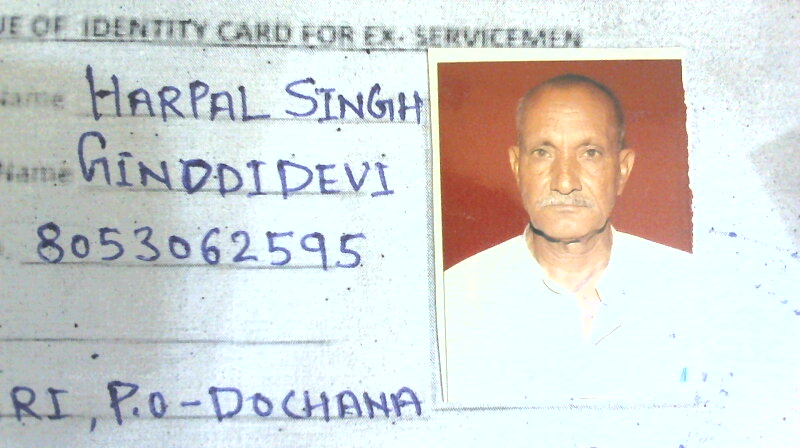 UE OF IDENTITY CARD FOR EX- SERVICEMEN
Name HARPAL SINGH
Name GINDDI DEVI
8053062595
RI, P.O-DOCHANA